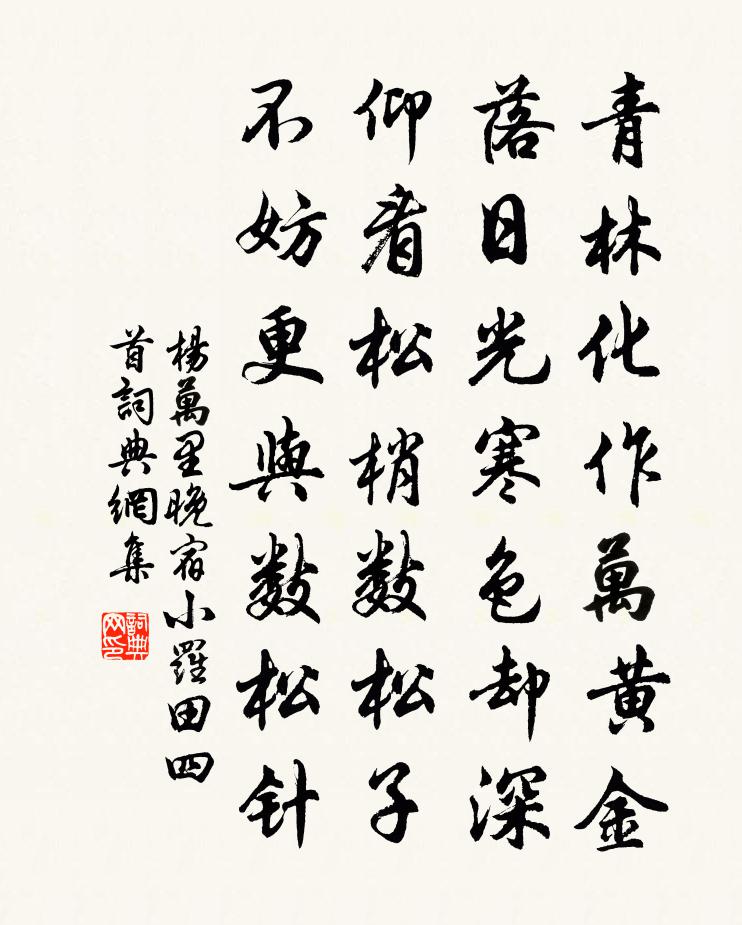 青林化作萬黄金
落日光寒色却深
仰看松梢數松子
不妨更與數松针
楊萬里晚宿小羅田四
首詞典網集
詞典
网印